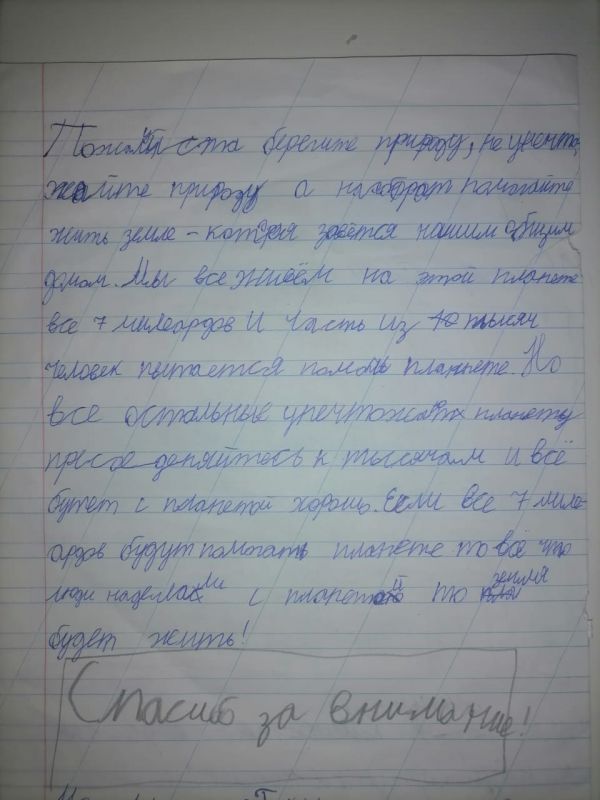 Пожалыста берегите природу, не унечто-
жайте природу а наоборот помогайте
жить земле - которая зовётся нашим общим
домом. Мы все живём на этой планете
все 7 милеардов И часть из 10 тысяч
человек пытается помочь планнете. Но
все остальные унечтожают планету
присоеденяйтесь к тысячам и всё
бутет с планетой хорошо. Если все 7 миле-
ардов будут помогать планете то всё что
люди наделали с планетой то земля
будет жить!
Спасиб за внимание!